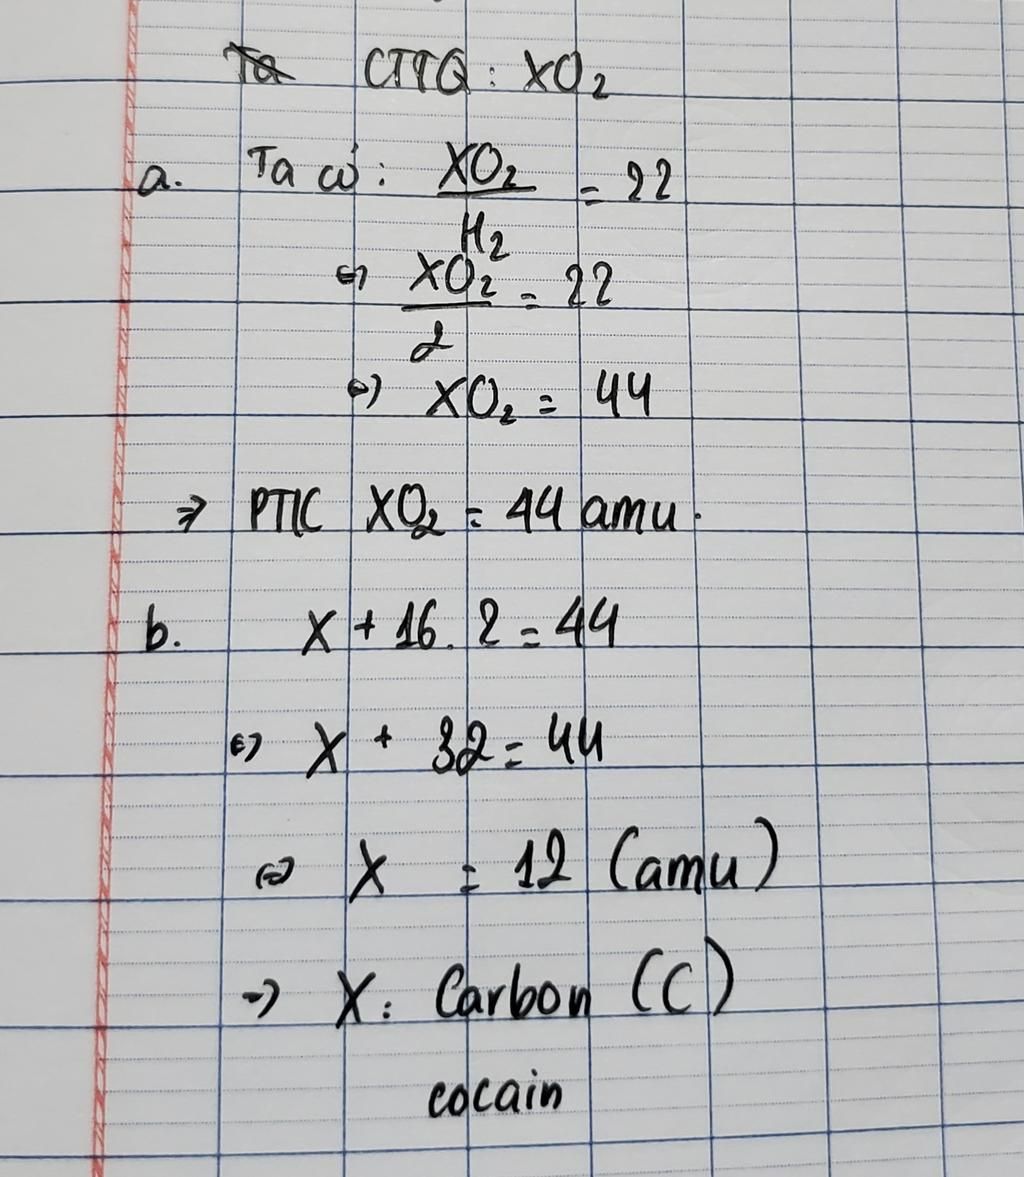 CTTQ: XO₂
a. Ta có: XO₂ / H₂ = 22
⇔ XO₂ / 2 = 22
⇔ XO₂ = 44
⇒ PTK XO₂ = 44 amu.
b. X + 16 . 2 = 44
⇔ X + 32 = 44
⇔ X = 12 (amu)
→ X: Carbon (C)
cocain